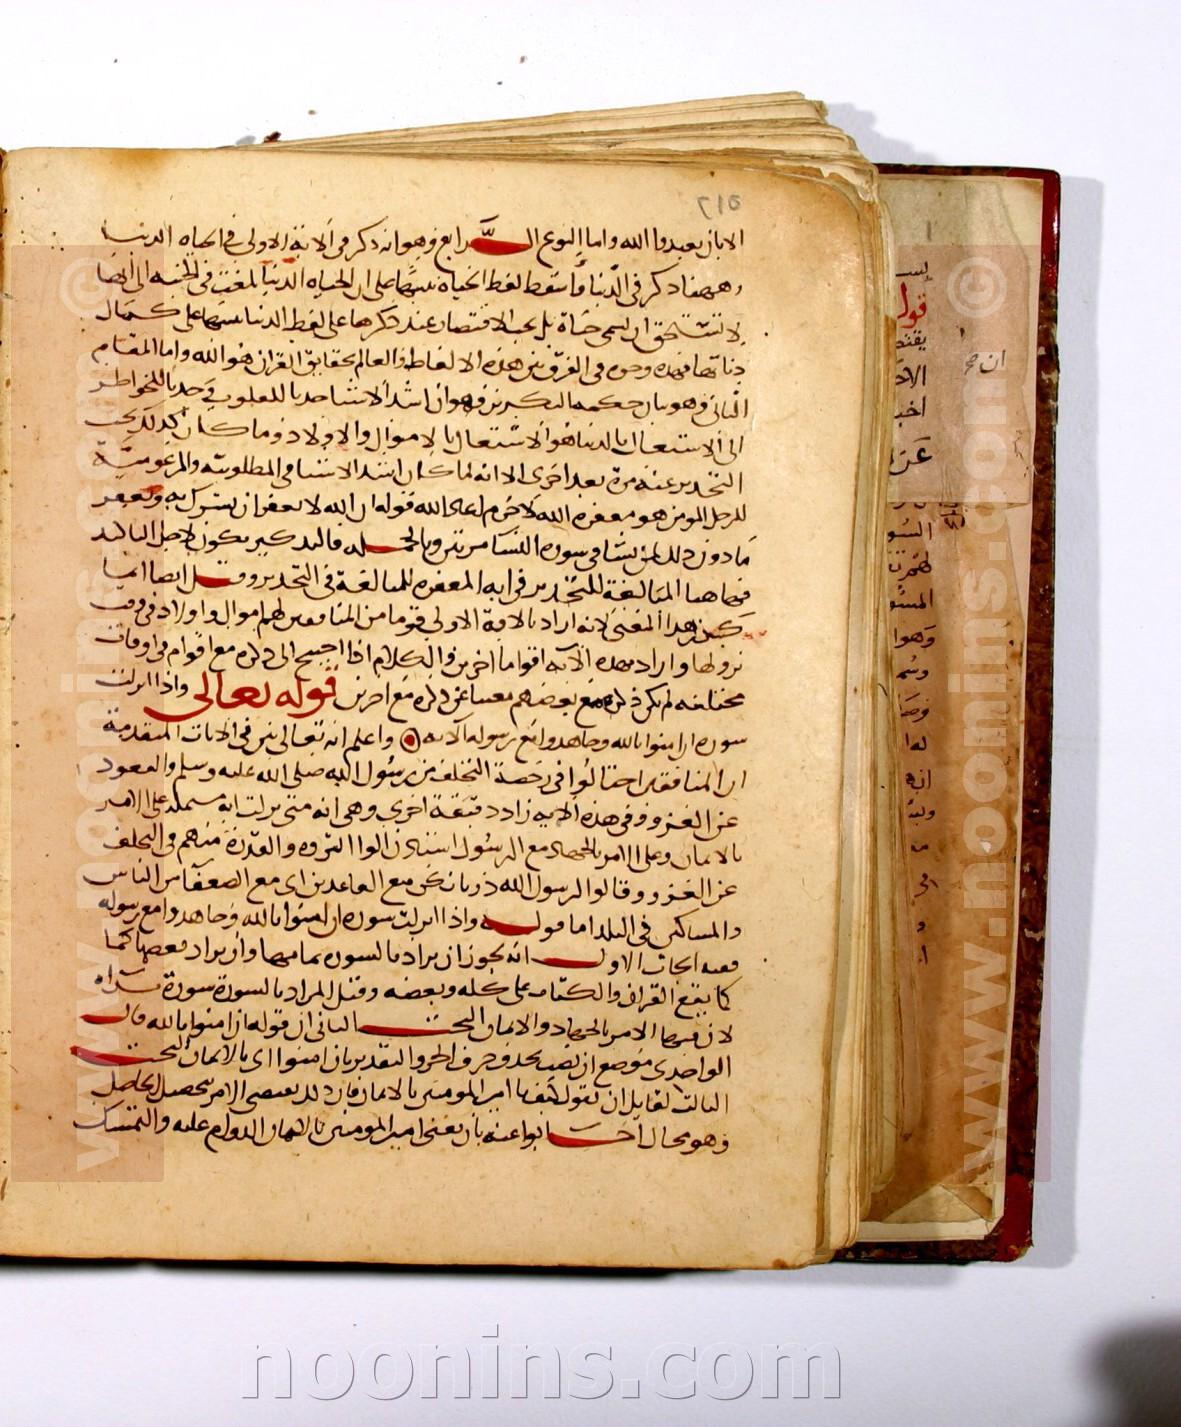 ٥١٢
الا بان يعبدوا الله واما النوع الرابع وهو انه ذكر في الاية الاولى في الحياه الدنيا
وههنا ذكر في الدنيا واسقط لفظ الحياة تنبيها على ان الحياه الدنيا بلغت في الخسه الى انها
لا تستحق ان تسمى حياة بل يجب الاقتصار عند ذكرها على لفظ الدنيا تنبيها على كمال
دناتها فهذه وجوه في الفرق بين هذه الالفاظ والعالم بحقايق القران هو الله واما المقام
الثاني وهو بيان حكمه التكرير فهو ان اشد الاشيا جذبا للقلوب وجذبا للخواطر
الى الاشتغال بالدنيا هو الاشتغال بالاموال والاولاد وما كان كذلك يجب
التحذير عنه مرة بعد اخرى الا انه لما كان اشد الاشيا في المطلوبيه والمرغوبية
للرجل المومن هو مغفره الله لا جرم اعاد الله قوله ان الله لا يغفر ان يشرك به ويغفر
ما دون ذلك لمن يشا في سوره النسا مرتين وبالجمله فالتكرير يكون لاجل التاكيد
فههنا المبالغة للتحذير وفي ايه المغفره للمبالغة في التحذير وقيل ايضا انما
كرر هذا المعنى لانه اراد بالاية الاولى قوما من المنافقين لهم اموال واولاد في وقت
نزولها واراد بهذه الآية اقواما اخرين والكلام اذا احتيج الى ذكره مع اقوام في اوقات
مختلفه لم يكن ذكره مع بعضهم مغنيا عن ذكره مع اخرين قوله تعالى واذا انزلت
سوره ان امنوا بالله وجاهدوا مع رسوله الآيه واعلم انه تعالى بين في الايات المتقدمة
ان المنافقين احتالوا في رخصة التخلف من رسول الله صلى الله عليه وسلم والقعود
عن الغزو وفي هذه الآيه زاد دقيقة اخرى وهي انه متى نزلت اية مشتمله على الامر
بالايمان وعلى الامر بالجهاد مع الرسول استاذن اولوا الثروه والقدرة منهم في التخلف
عن الغزو وقالوا لرسول الله ذرنا نكن مع القاعدين اي مع الضعفآ من الناس
والمساكين في البلد اما قوله واذا انزلت سوره ان امنوا بالله وجاهدوا مع رسوله
ففيه ابحاث الاول انه يجوز ان يراد بالسوره تمامها وان يراد بعضها كما
كما يقع القران والكتاب على كله وبعضه وقيل المراد بالسورة سورة براه
لان فيها الامر بالجهاد والايمان البحث الثاني ان قوله ان امنوا بالله قال
الواحدي موضع ان نصب بحذف حرف الجر والتقدير بان امنوا اي بالايمان البحث
الثالث لقايل ان يقول كيف يامر المومنين بالايمان فان ذلك يقتضي الامر بتحصيل الحاصل
وهو محال اجابوا عنه بان معنى امر المومنين بالايمان الدوام عليه والتمسك
ان صح
قوله
www.noonins.com ©
www.noonins.com ©
noonins.com